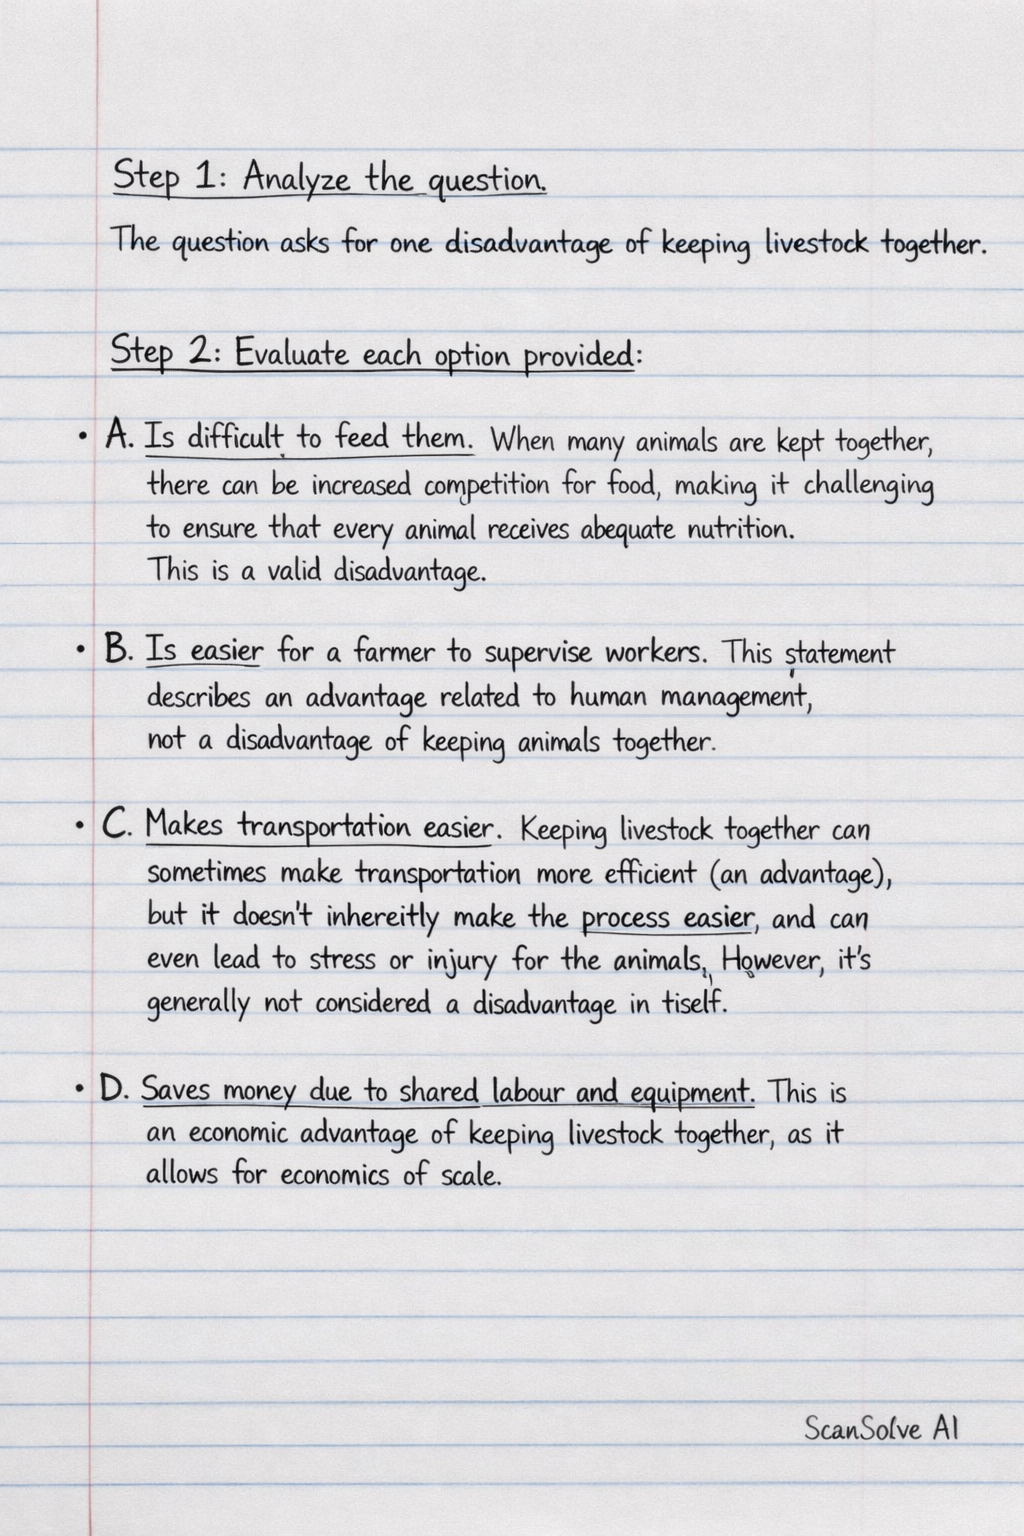 Step 1: Analyze the question.
The question asks for one disadvantage of keeping livestock together.
Step 2: Evaluate each option provided:
• A. Is difficult to feed them. When many animals are kept together,
there can be increased competition for food, making it challenging
to ensure that every animal receives abequate nutrition.
This is a valid disadvantage.
• B. Is easier for a farmer to supervise workers. This statement
describes an advantage related to human management,
not a disadvantage of keeping animals together.
• C. Makes transportation easier. Keeping livestock together can
sometimes make transportation more efficient (an advantage),
but it doesn't inhereitly make the process easier, and can
even lead to stress or injury for the animals, However, it's
generally not considered a disadvantage in tiself.
• D. Saves money due to shared labour and equipment. This is
an economic advantage of keeping livestock together, as it
allows for economics of scale.
ScanSolve AI